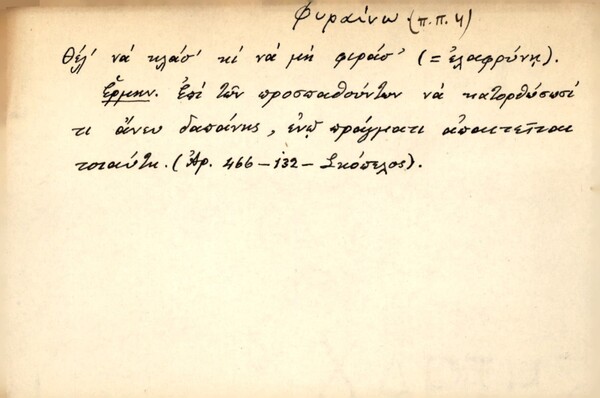 Φυραίνω (π.π. 4)
Θέλ' νὰ κλάσ' κὶ νὰ μὴ φιράσ' (= ἐλαφρύνῃ).
Ἑρμην. Ἐπὶ τῶν προσπαθούντων νὰ κατορθώσωσί
τι ἄνευ δαπάνης, ἐνῷ πράγματι ἀπαιτεῖται
τοιαύτη. (Ἀρ. 466 – 132 – Σκόπελος).